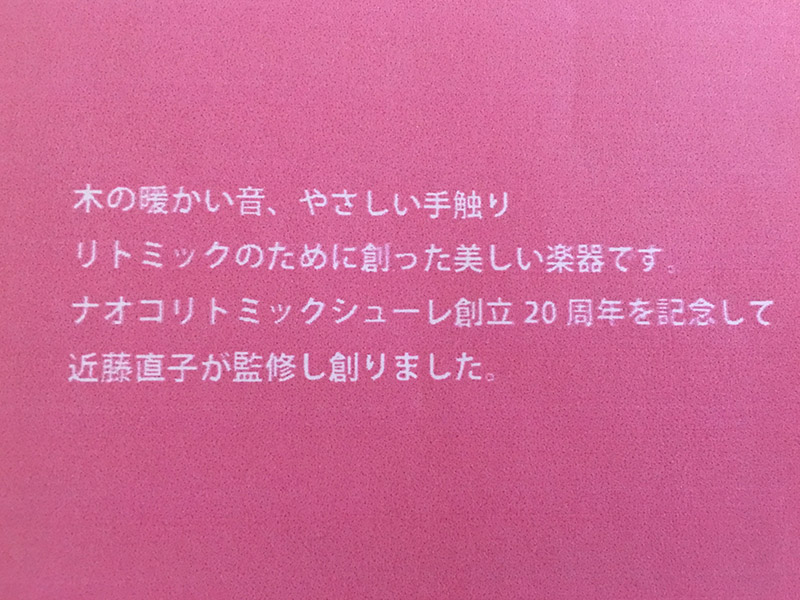 木の暖かい音、やさしい手触り
リトミックのために創った美しい楽器です。
ナオコリトミックシューレ創立 20 周年を記念して
近藤直子が監修し創りました。